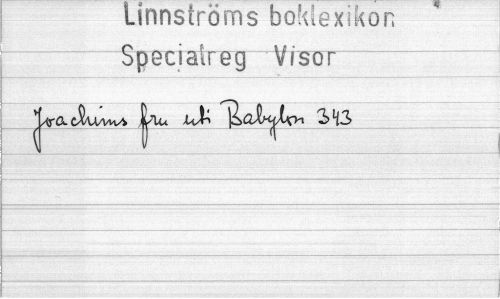 Linnströms boklexikon
Specialreg Visor
Joachims fru uti Babylon 343